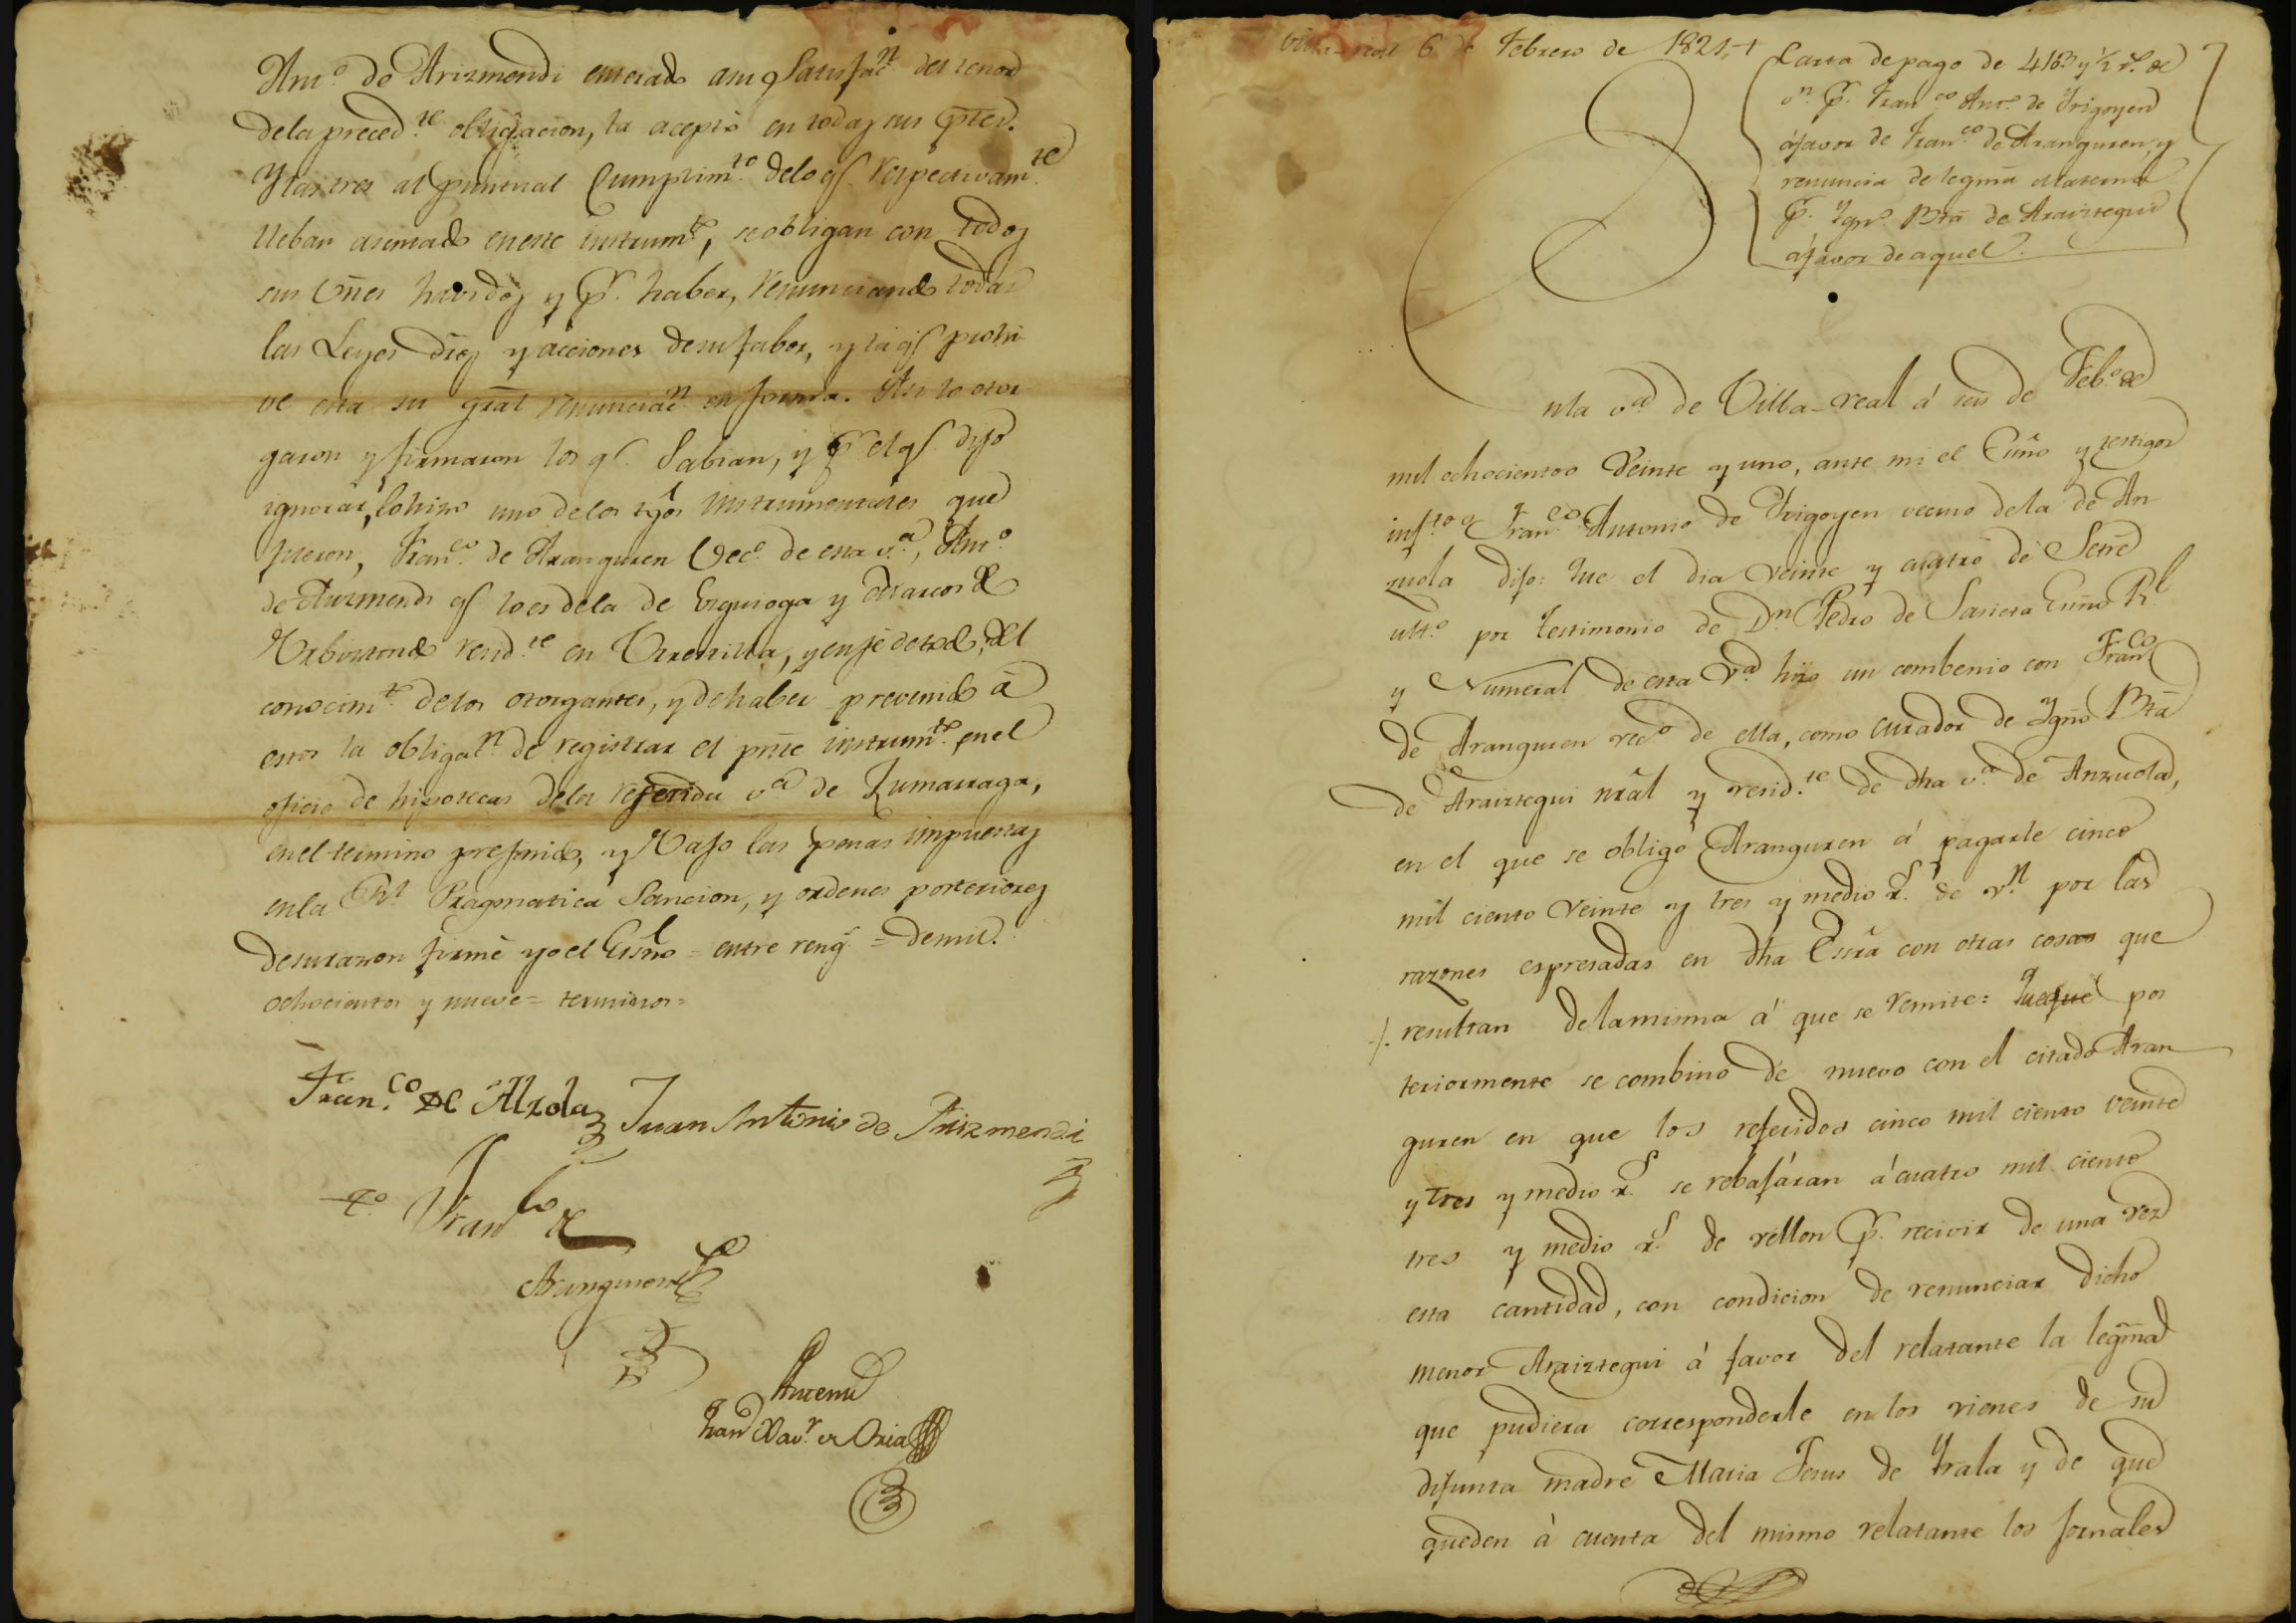 Ant.º de Arizmendi enterado a su satisfac.n del tenor
de la preced.te obligacion, la aceptó en todas sus ptes.
Y las tres al puntual cumplim.to de lo q.e respectivam.te
lleban asentado en este instrum.to, se obligan con todos
sus vñes havidos y p.r haber, renunciando todas
las Leyes dros y acciones de su fabor, y la q.e prohi
ve esta su gral renunciac.n en forma. Asi lo otor
garon y firmaron los q.e Sabian, y p.r el q.e dijo
ignorar, lo hizo uno de los tgos instrumentales que
fueron, Fran.co de Aranguren Vec.º de esta v.a, Ant.º
de Arizmendi q.e lo es de la de Ezquioga y Marcos de
resid.te en , y en fe de todo, del
conocim.to de los otorgantes, y de haber prevenido á
estos la obligac.n de registrar el pñte instrum.to en el
oficio de hipotecas de la referida v.a de Zumarraga,
en el termino prefinido, y Vajo las penas impuestas
en la R.l Pragmatica Sancion, y ordenes posteriores
de su razon firmé yo el Esño = entre reng.s = de mil
ochocientos y nueve = terminos =
Fran.co de Alzola Juan Antonio de Arizmendi
T.º Fran.co de
Aranguren
Antemi
Fran.co Xav.r de Oria
Villa-real 6 de Febrero de 1821,+
Carta de pago de 4103 y ½ r.s de
v.n p.r Fran.co Ant.º de Yrigoyen
á favor de Fran.co de Aranguren, y
renuncia de legma materna
p.r Ygn.º Bta de Araiztegui
á favor de aquel.
En la v.a de Villa-real á seis de Feb.º de
mil ochocientos Veinte y uno, ante mi el Esño y testigos
inf.tos Fran.co Antonio de Yrigoyen vecino de la de An
zuola dijo: Que el dia veinte y cuatro de Setre
ult.º por testimonio de D.n Pedro de Esño R.l
y Numeral de esta V.a hizo un combenio con Fran.co
de Aranguren vec.º de ella, como curador de Ygnº Bta
de Araiztegui nrâl y resid.te de dha v.a de Anzuola,
en el que se obligó Aranguren á pagarle cinco
mil ciento Veinte y tres y medio r.s de v.n por las
razones espresadas en dha Escra con otras cosas que
resultan de la misma á que se remite: Que que pos
teriormente se combino de nuevo con el citado Aran
guren en que los referidos cinco mil ciento veinte
y tres y medio r.s se rebajáran á cuatro mil ciento
tres y medio r.s de vellon p.r recivir de una vez
esta cantidad, con condicion de renunciar dicho
menor Araiztegui á favor del relatante la legma
que pudiera corresponderle en los vienes de su
difunta madre Maria Jesus de Yrala y de que
queden á cuenta del mismo relatante los jornales